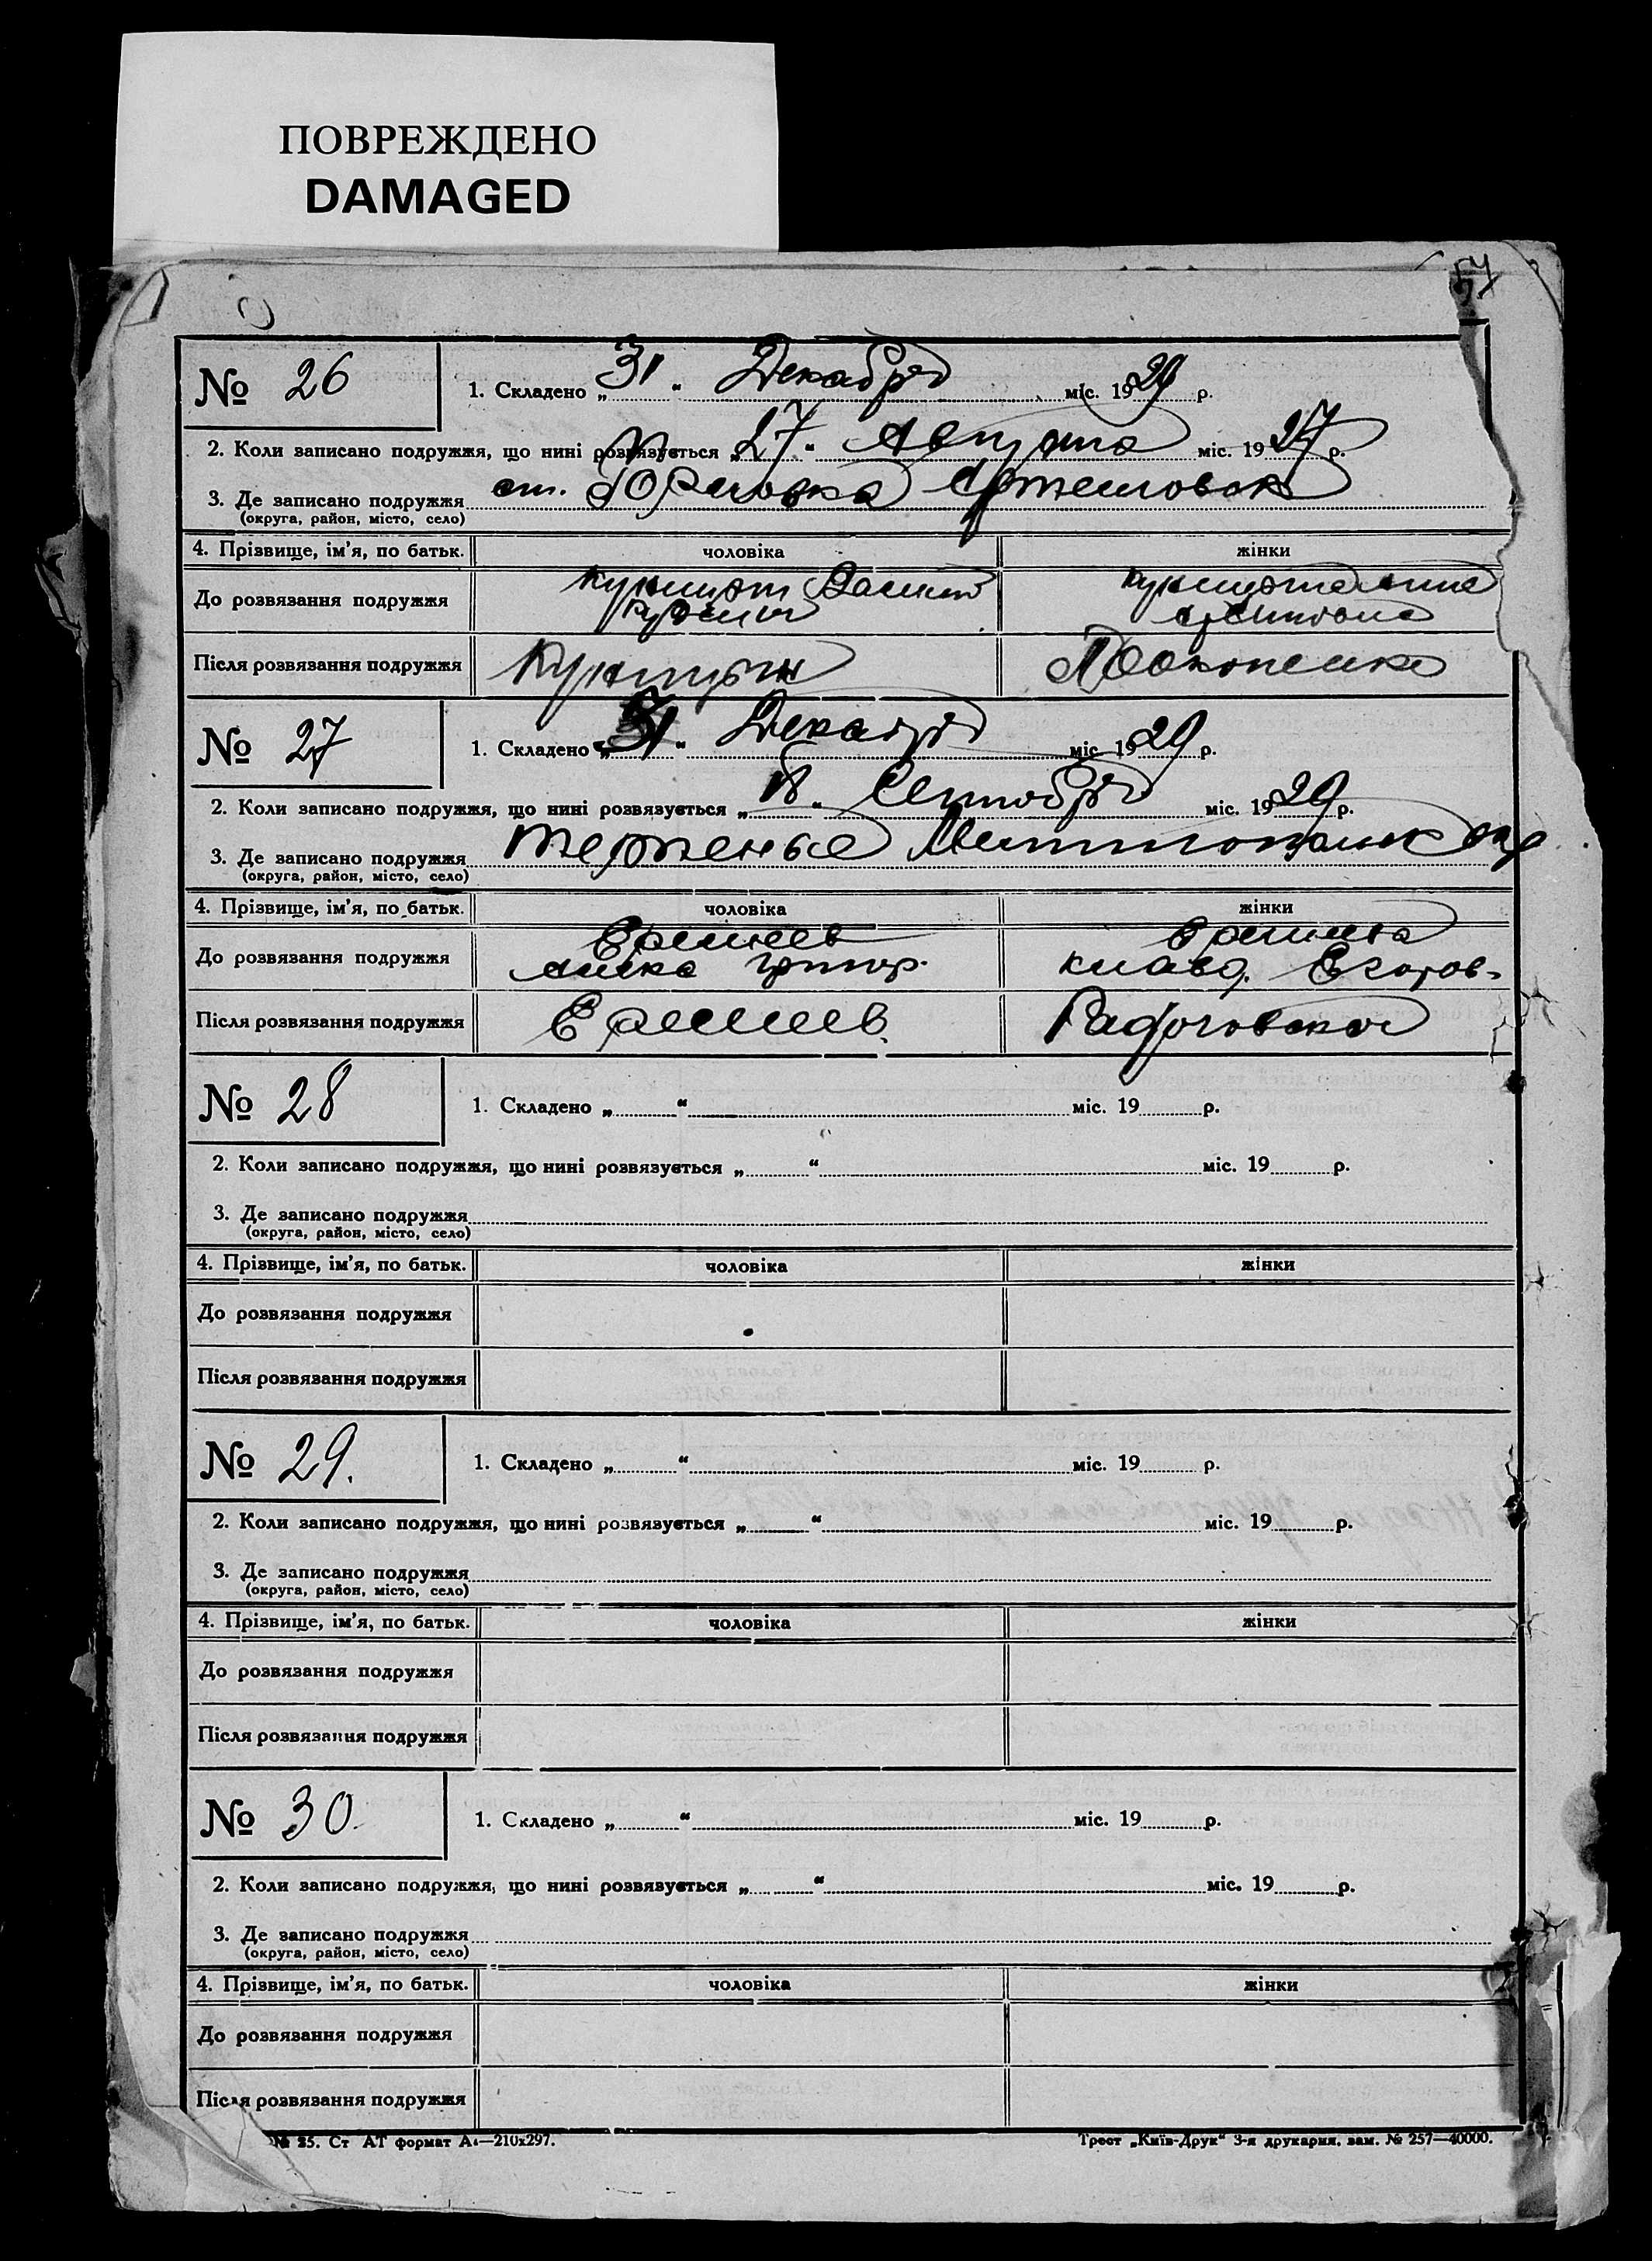 ПОВРЕЖДЕНО
DAMAGED
№ 26
1. Складено „ 31 “ Декабря міс. 1929 р.
2. Коли записано подружжя, що нині розвязується „ 27 “ Августа міс. 1927 р.
3. Де записано подружжя ст.
(округа, район, місто, село)
4. Прізвище, ім'я, по батьк. чоловіка жінки
До розвязання подружжя
Після розвязання подружжя
№ 27
1. Складено „ 31 “ Декабря міс. 1929 р.
2. Коли записано подружжя, що нині розвязується „ 18 “ Сентября міс. 1929 р.
3. Де записано подружжя
(округа, район, місто, село)
4. Прізвище, ім'я, по батьк. чоловіка жінки
До розвязання подружжя
Після розвязання подружжя
№ 28
1. Складено „ “ міс. 19 р.
2. Коли записано подружжя, що нині розвязується „ “ міс. 19 р.
3. Де записано подружжя
(округа, район, місто, село)
4. Прізвище, ім'я, по батьк. чоловіка жінки
До розвязання подружжя
Після розвязання подружжя
№ 29.
1. Складено „ “ міс. 19 р.
2. Коли записано подружжя, що нині розвязується „ “ міс. 19 р.
3. Де записано подружжя
(округа, район, місто, село)
4. Прізвище, ім'я, по батьк. чоловіка жінки
До розвязання подружжя
Після розвязання подружжя
№ 30.
1. Складено „ “ міс. 19 р.
2. Коли записано подружжя, що нині розвязується „ “ міс. 19 р.
3. Де записано подружжя
(округа, район, місто, село)
4. Прізвище, ім'я, по батьк. чоловіка жінки
До розвязання подружжя
Після розвязання подружжя
№ 25. Ст АТ формат А4—210х297. Трест „Київ-Друк“ 3-я друкарня, зам. № 257—40000.